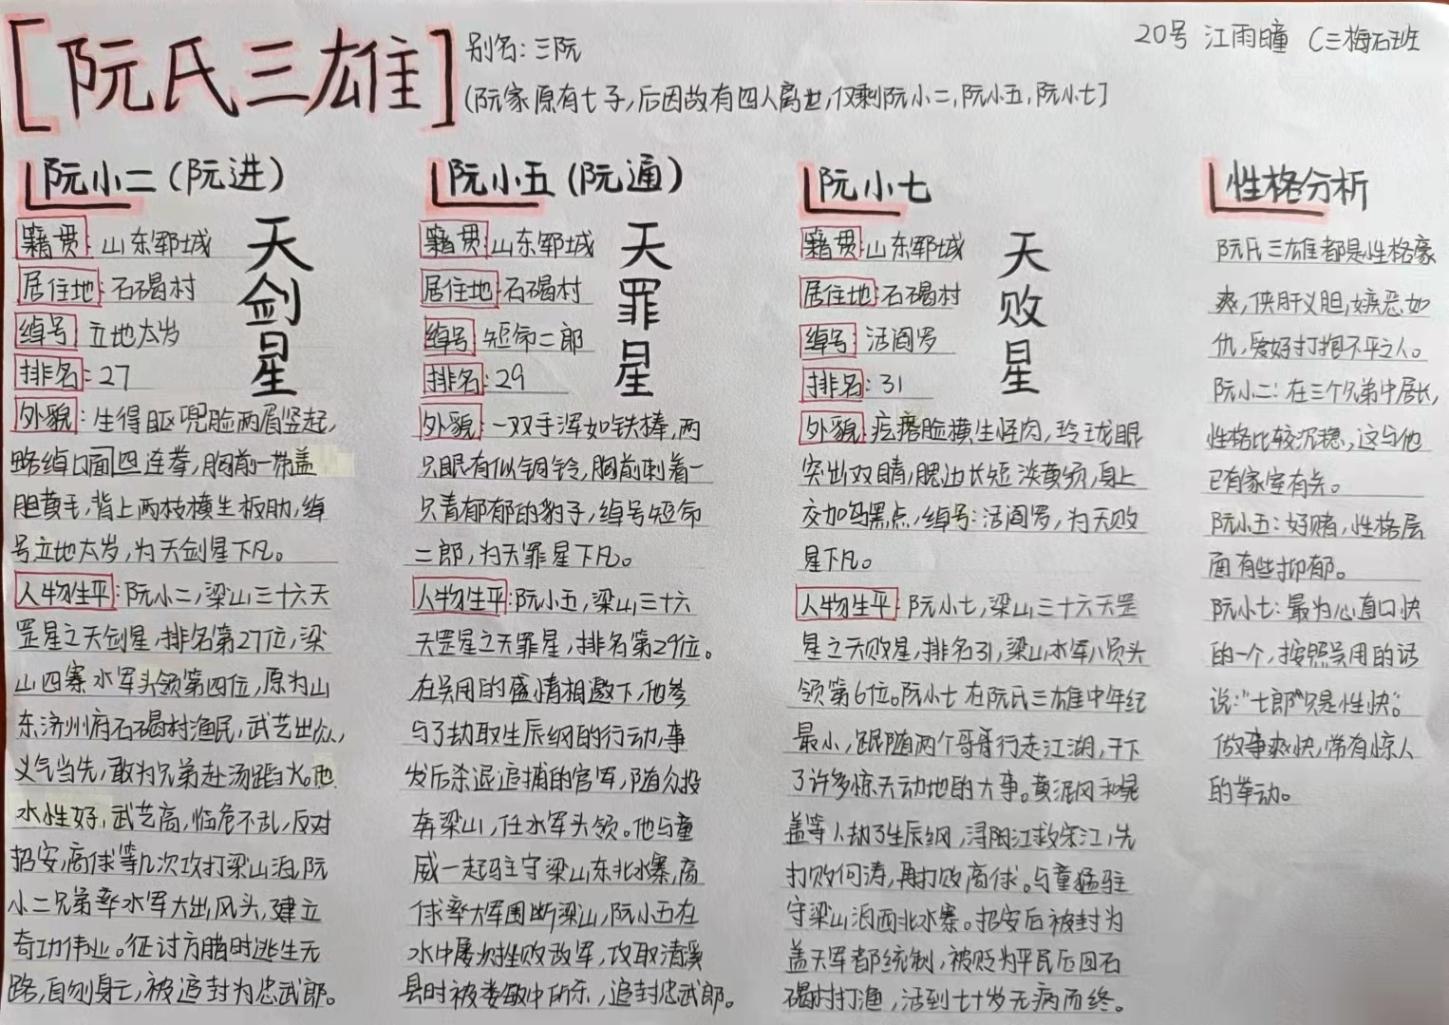 [阮氏三雄]
别名：三阮
20号 江雨瞳 C三梅石班
(阮家原有七子，后因故有四人离世，仅剩阮小二，阮小五，阮小七]
阮小二（阮进）
天剑星
籍贯：山东郓城
居住地：石碣村
绰号 立地太岁
排名：27
外貌：生得眍兜脸两眉竖起，
略绰口面四连拳，胸前一带盖
胆黄毛，背上两枝横生板肋，绰
号立地太岁，为天剑星下凡。
人物生平：阮小二，梁山三十六天
罡星之天剑星，排名第27位，梁
山四寨水军头领第四位，原为山
东济州府石碣村渔民，武艺出众，
义气当先，敢为兄弟赴汤蹈火。他
水性好，武艺高，临危不乱，反对
招安，高俅等几次攻打梁山泊，阮
小二兄弟率水军大出风头，建立
奇功伟业。征讨方腊时逃生无
路，自刎身亡，被追封为忠武郎。
阮小五（阮通）
天罪星
籍贯：山东郓城
居住地：石碣村
绰号 短命二郎
排名：29
外貌：一双手浑如铁棒，两
只眼有似铜铃，胸前刺着一
只青郁郁的豹子，绰号短命
二郎，为天罪星下凡。
人物生平：阮小五，梁山三十六
天罡星之天罪星，排名第29位。
在吴用的盛情相邀下，他参
与了劫取生辰纲的行动，事
发后杀退追捕的官军，随众投
奔梁山，任水军头领。他与童
威一起驻守梁山东北水寨，高
俅率大军围断梁山，阮小五在
水中屡次挫败敌军，攻取清溪
县时被娄敏中所杀，追封忠武郎。
阮小七
天败星
籍贯：山东郓城
居住地：石碣村
绰号：活阎罗
排名：31
外貌：疙瘩脸横生怪肉，玲珑眼
突出双睛，腮边长短淡黄须，身上
交加乌黑点，绰号：活阎罗，为天败
星下凡。
人物生平：阮小七，梁山三十六天罡
星之天败星，排名31，梁山水军八员头
领第6位。阮小七在阮氏三雄中年纪
最小，跟随两个哥哥行走江湖，干下
了许多惊天动地的大事。黄泥冈和晁
盖等人劫了生辰纲，浔阳江救宋江，先
打败何涛，再打败高俅。与童猛驻
守梁山泊西北水寨。招安后被封为
盖天军都统制，被贬为平民后回石
碣村打渔，活到七十岁无病而终。
性格分析
阮氏三雄都是性格豪
爽，侠肝义胆，嫉恶如
仇，爱好打抱不平之人。
阮小二：在三个兄弟中居长，
性格比较沉稳，这与他
已有家室有关。
阮小五：好赌，性格层
面有些抑郁。
阮小七：最为心直口快
的一个，按照吴用的话
说：“七郎”只是性快”。
做事爽快，常有惊人
的举动。